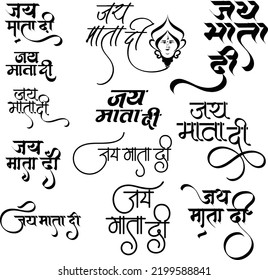 जय
माता दी
जय
माता दी
जय
माता
दी
जय
माता दी
जय
माता दी
जय
माता दी
जय
माता दी
जय
माता दी
जय माता दी
जय
माता दी
जय माता दी
जय
माता दी
shutterstock.com · 2199588841